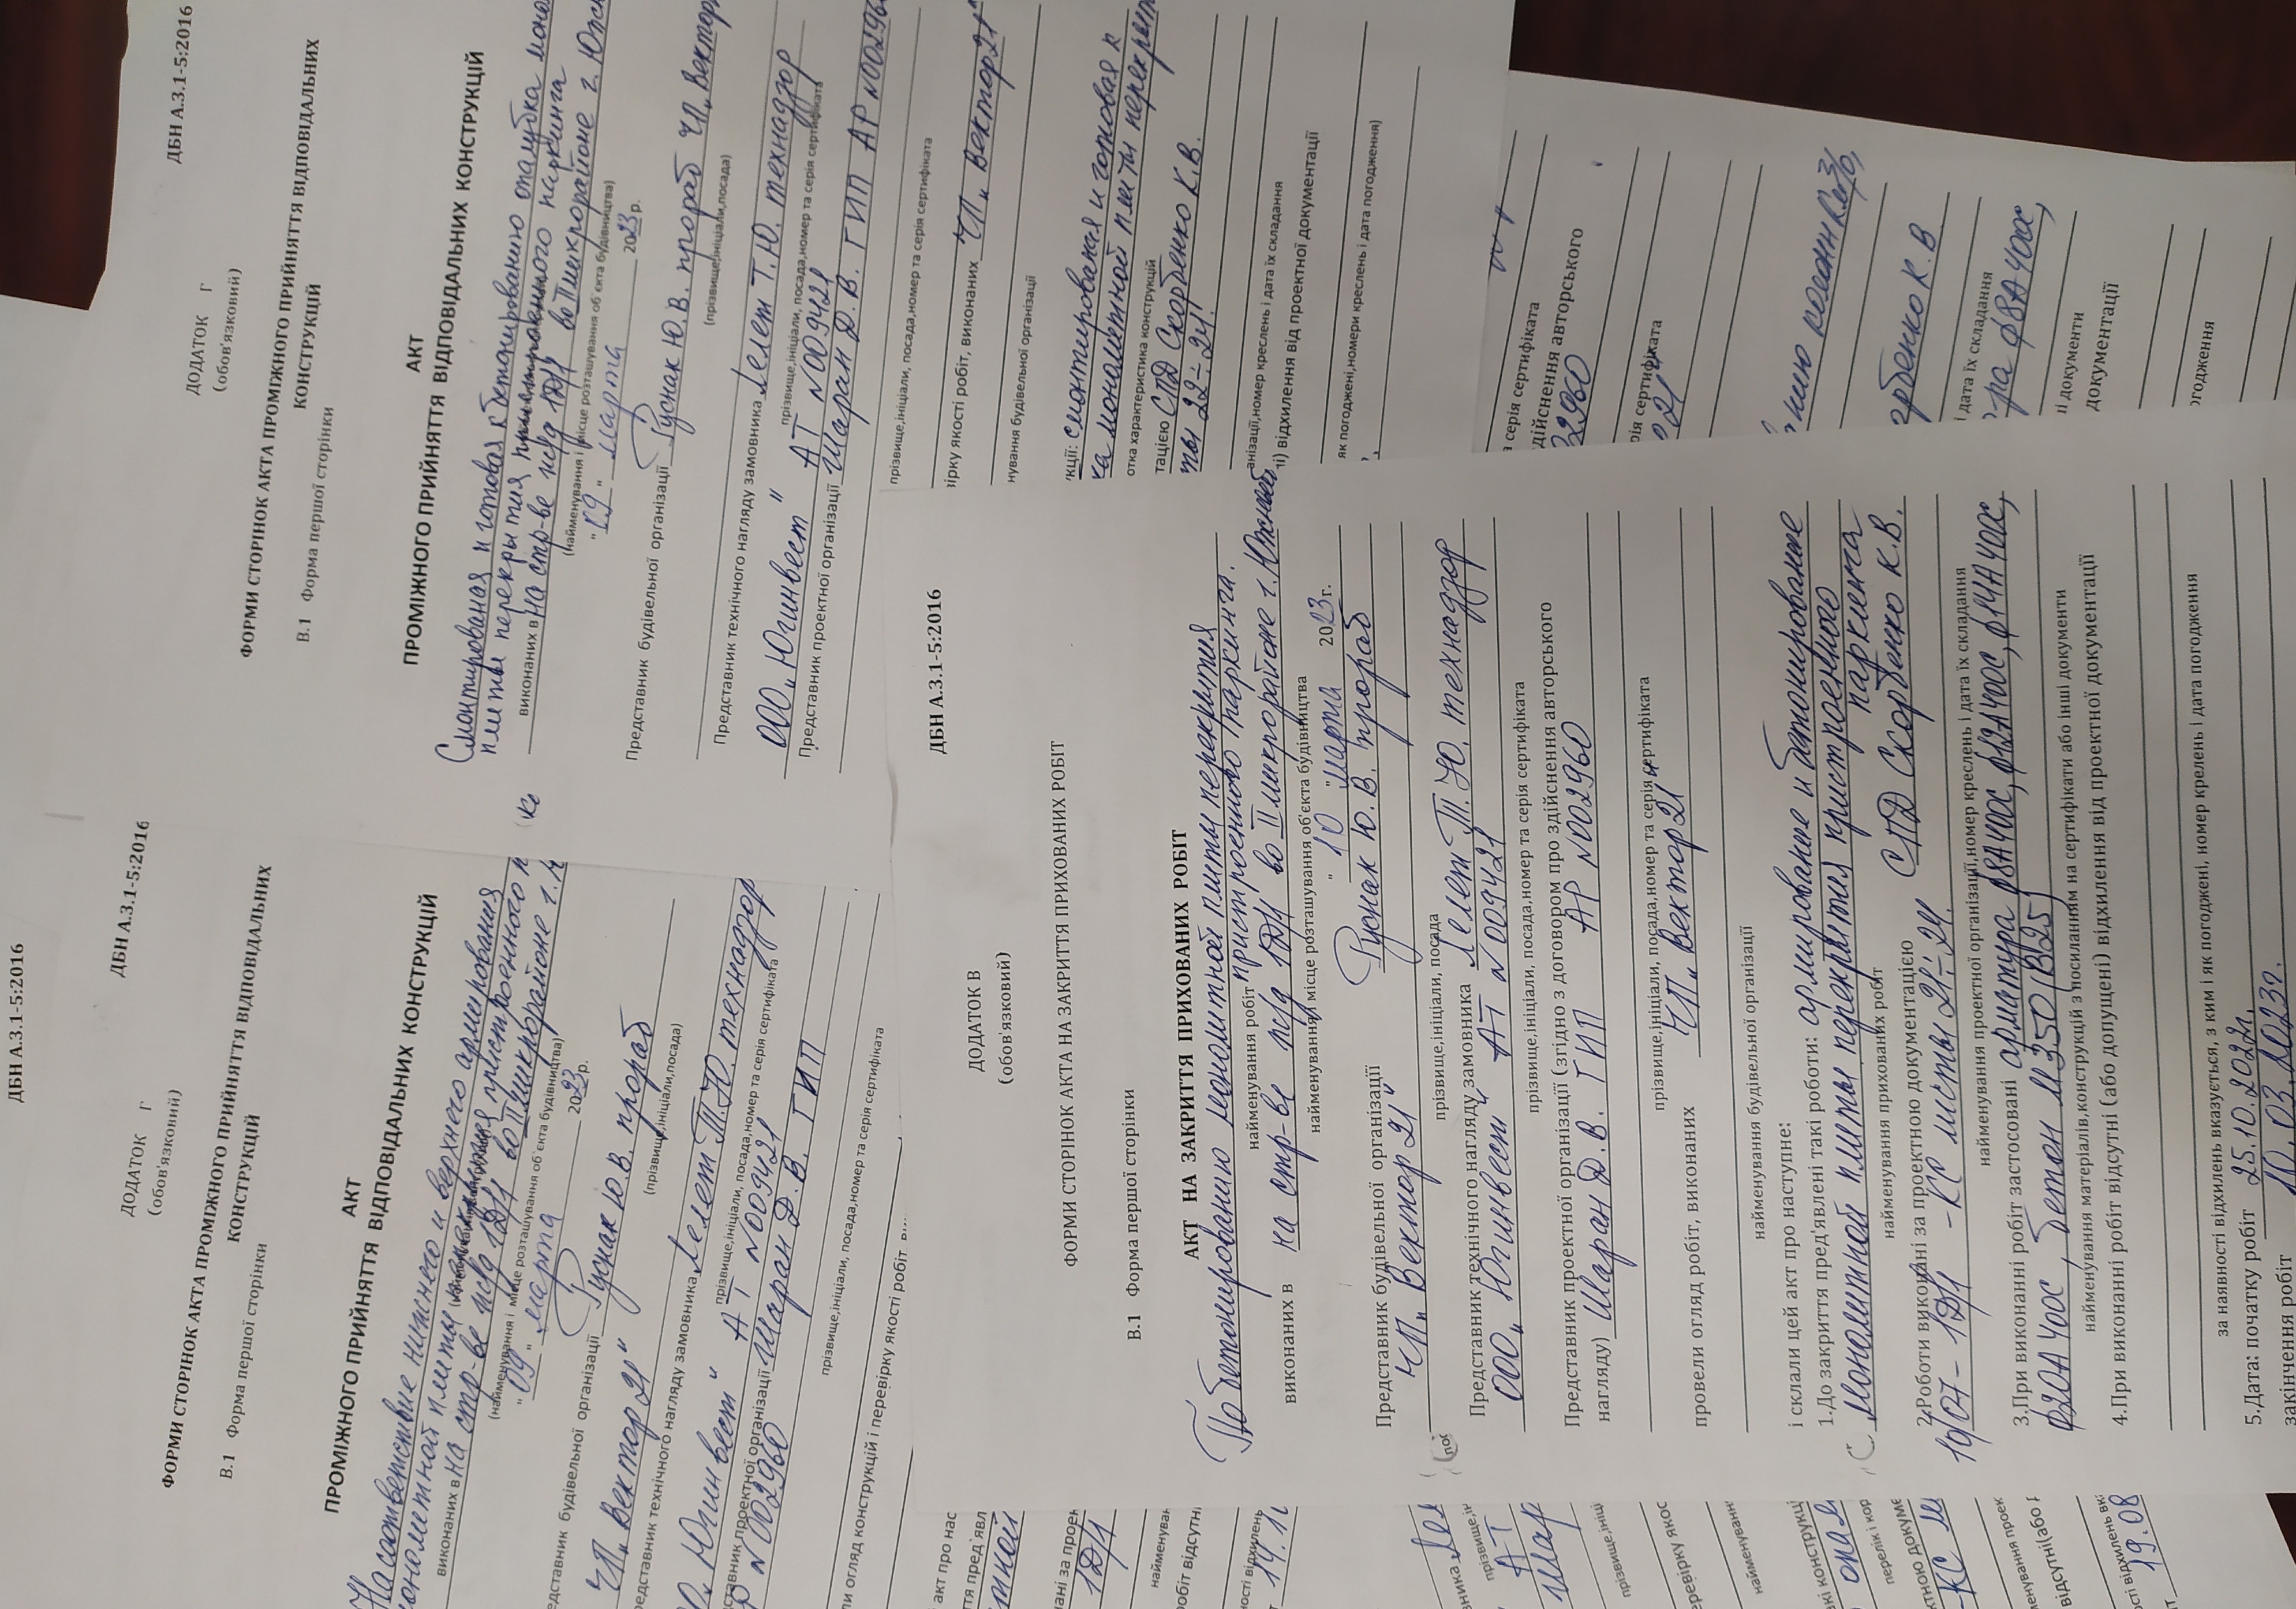 ДБН А.3.1-5:2016
ДОДАТОК Г
(обов'язковий)
ФОРМИ СТОРІНОК АКТА ПРОМІЖНОГО ПРИЙНЯТТЯ ВІДПОВІДАЛЬНИХ
КОНСТРУКЦІЙ
В.1 Форма першої сторінки
АКТ
ПРОМІЖНОГО ПРИЙНЯТТЯ ВІДПОВІДАЛЬНИХ КОНСТРУКЦІЙ
Смонтированая и готовая к бетонированию опалубка моно
плиты перекрытия паркинга
виконаних в на стр-ве ж/д 1Д/1 во II микрорайоне г. Южн
(найменування і місце розташування об'єкта будівництва)
"09" марта 2023 р.
Представник будівельної організації Руснак Ю.В. прораб ЧП „Вектор
(прізвище,ініціали,посада)
Представник технічного нагляду замовника Лелет Т.Ю. технадзор
прізвище,ініціали, посада,номер та серія сертифіката
ООО „Югинвест" АТ N009421
Представник проектної організації Шаран Д.В. ГИП АР N00296
прізвище,ініціали, посада,номер та серія сертифіката
ірку якості робіт, виконаних ЧП „Вектор21"
нування будівельної організації
кції: смонтированая и готовая к
ка монолитной плиты перекрыт
отка характеристика конструкцій
тацією СПД Скорбенко К.В.
ты 22÷24
анізації,номер креслень і дата їх складання
ні) відхилення від проектної документації
як погоджені,номери креслень і дата погодження)
ДБН А.3.1-5:2016
ДБН А.3.1-5:2016
ДОДАТОК Г
(обов'язковий)
ФОРМИ СТОРІНОК АКТА ПРОМІЖНОГО ПРИЙНЯТТЯ ВІДПОВІДАЛЬНИХ
КОНСТРУКЦІЙ
В.1 Форма першої сторінки
АКТ
ПРОМІЖНОГО ПРИЙНЯТТЯ ВІДПОВІДАЛЬНИХ КОНСТРУКЦІЙ
На соответствие нижнего и верхнего армирования
монолитной плиты пристроенного п
виконаних в на стр-ве ж/д 1Д/1 во II микрорайоне г.
(найменування і місце розташування об'єкта будівництва)
"09" марта 2023 р.
едставник будівельної організації Руснак Ю.В. прораб
ЧП „Вектор 21"
(прізвище,ініціали,посада)
редставник технічного нагляду замовника Лелет Т.Ю. технадзор
прізвище,ініціали, посада,номер та серія сертифіката
О „Югинвест" АТ N009421
ставник проектної організації Шаран Д.В. ГИП
Р N002960
прізвище,ініціали, посада,номер та серія сертифіката
ли огляд конструкцій і перевірку якості робіт
ДБН А.3.1-5:2016
ДОДАТОК В
(обов'язковий)
ФОРМИ СТОРІНОК АКТА НА ЗАКРИТТЯ ПРИХОВАНИХ РОБІТ
В.1 Форма першої сторінки
АКТ НА ЗАКРИТТЯ ПРИХОВАНИХ РОБІТ
По бетонированию монолитной плиты перекрытия
найменування робіт пристроенного паркинга.
виконаних в на стр-ве ж/д 1Д/1 во II микрорайоне г. Южный
найменування і місце розташування об'єкта будівництва
"10" марта 2023 г.
Представник будівельної організації Руснак Ю.В. прораб
ЧП „Вектор 21"
прізвище,ініціали, посада
Представник технічного нагляду замовника Лелет Т.Ю. технадзор
ООО „Югинвест" АТ N009421
прізвище,ініціали, посада,номер та серія сертифіката
Представник проектної організації (згідно з договором про здійснення авторського
нагляду) Шаран Д.В. ГИП АР N002960
прізвище,ініціали, посада,номер та серія сертифіката
провели огляд робіт, виконаних ЧП „Вектор21"
найменування будівельної організації
і склали цей акт про наступне:
1.До закриття пред'явлені такі роботи: армирование и бетонирование
монолитной плиты перекрытия пристроенного
найменування прихованих робіт паркинга
2.Роботи виконані за проектною документацією СПД Скорбенко К.В.
10/07- 1Д/1 -КС листы 21÷24.
найменування проектної організації,номер креслень і дата їх складання
3.При виконанні робіт застосовані арматура ф8А400С, ф12А400С, ф14А400С,
ф20А400С, бетон М350(В25)
найменування матеріалів,конструкцій з посиланням на сертифікати або інші документи
4.При виконанні робіт відсутні (або допущені) відхилення від проектної документації
за наявності відхилень вказується, з ким і як погоджені, номер крелень і дата погодження
5.Дата: початку робіт 25.10.2022г.
закінчення робіт 10.03.2023г.
серія сертифіката
дійснення авторського
2960
рія сертифіката
21"
рбенко К.В
і дата їх складання
ра ф8А400С,
ні документи
документації
огодження
акт про нас
ття пред'явл
ані за проек
1Д/1
найменуван
робіт відсутн
ності відхилень
прізвище,ініц
АТ
Шар
еревірку якос
найменуванн
кі конструкці
перелік і кор
ктною докуме
-КС
менування проек
відсутні(або
19.08